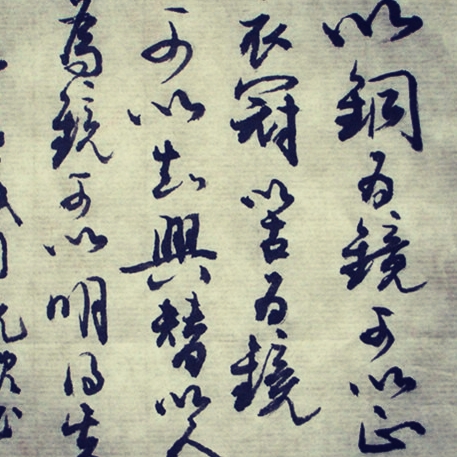 以銅為鏡可以正
衣冠以古為鏡
可以知興替以人
為鏡可以明得失